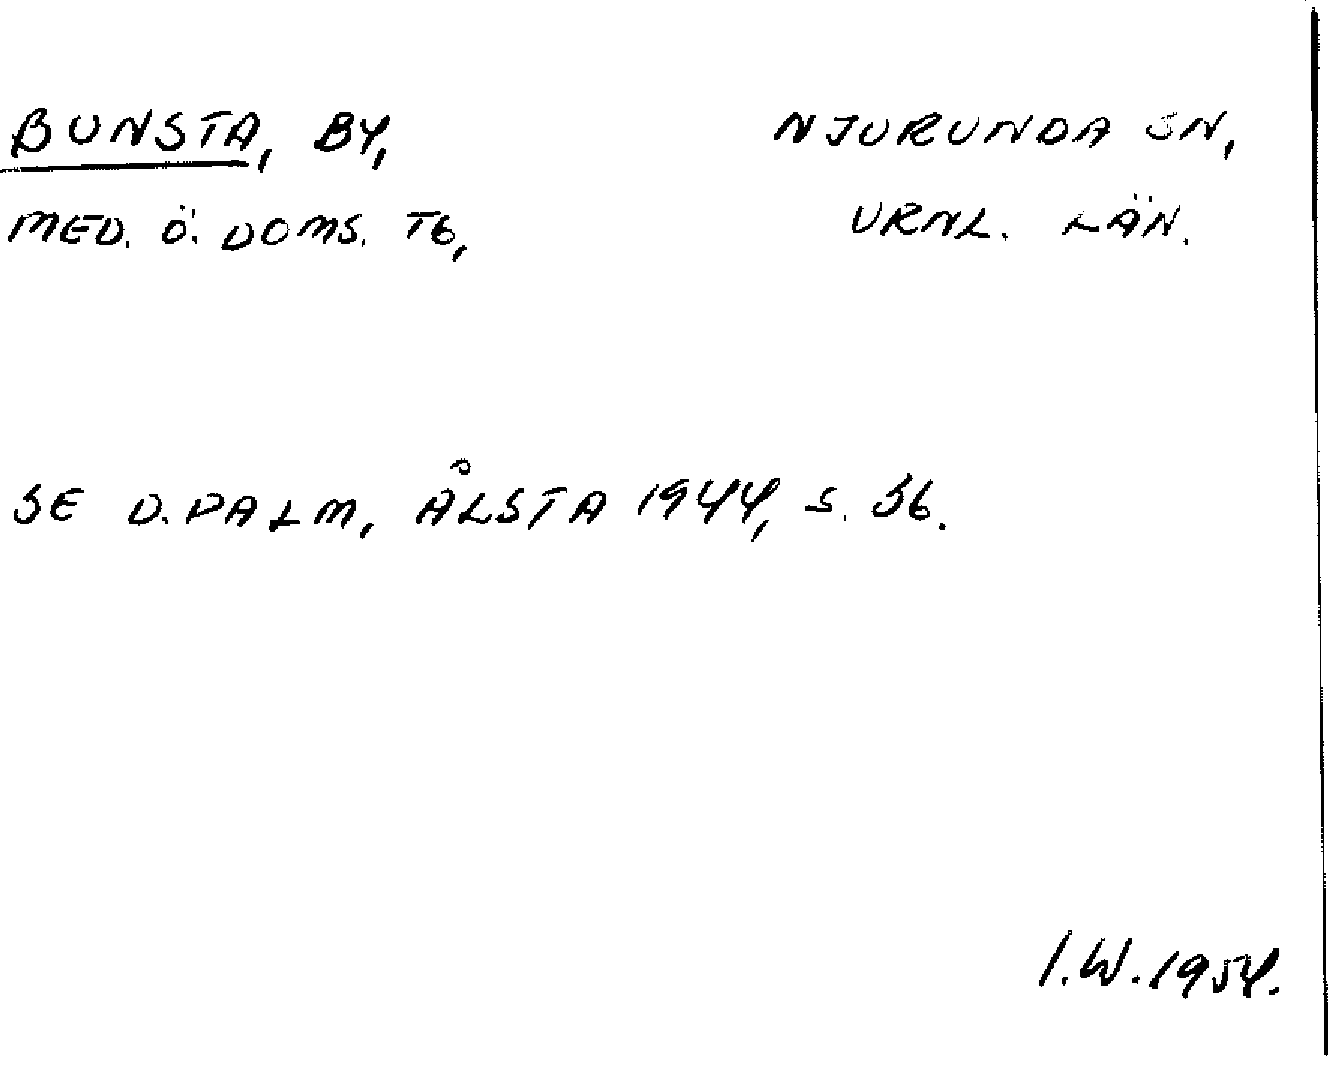 BUNSTA, BY, NJURUNDA SN,
MED. Ö. DOMS. TG, VRNL. LÄN.
SE D. PALM, ÅLSTA 1944, S. 56.
I.W. 1954.